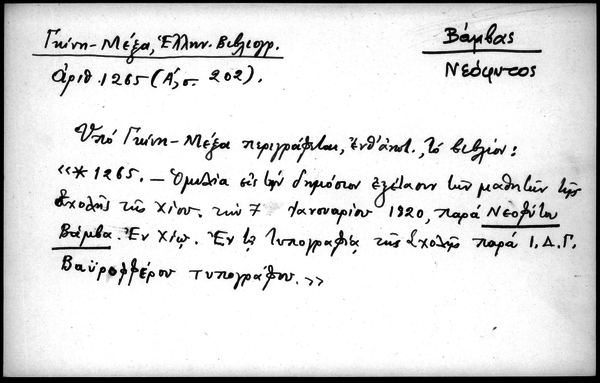 Γκίνη-Μέξα, Ἑλλην. Βιβλιογρ.
ἀριθ. 1265 (Α΄, σ. 202).
Βάμβας
Νεόφυτος
Ὑπό Γκίνη-Μέξα περιγράφεται, ἔνθ' ἀνωτ., τό βιβλίον:
«* 1265. — Ὁμιλία εἰς τήν δημόσιον ἐξέτασιν τῶν μαθητῶν τῆς
Σχολῆς τῆς Χίου. τήν 7 Ἰανουαρίου 1820, παρά Νεοφύτου
Βάμβα. Ἐν Χίῳ. Ἐν τῇ Τυπογραφίᾳ τῆς Σχολῆς παρά Ι.Δ.Γ.
Βαϋροφφέρου τυπογράφου.»